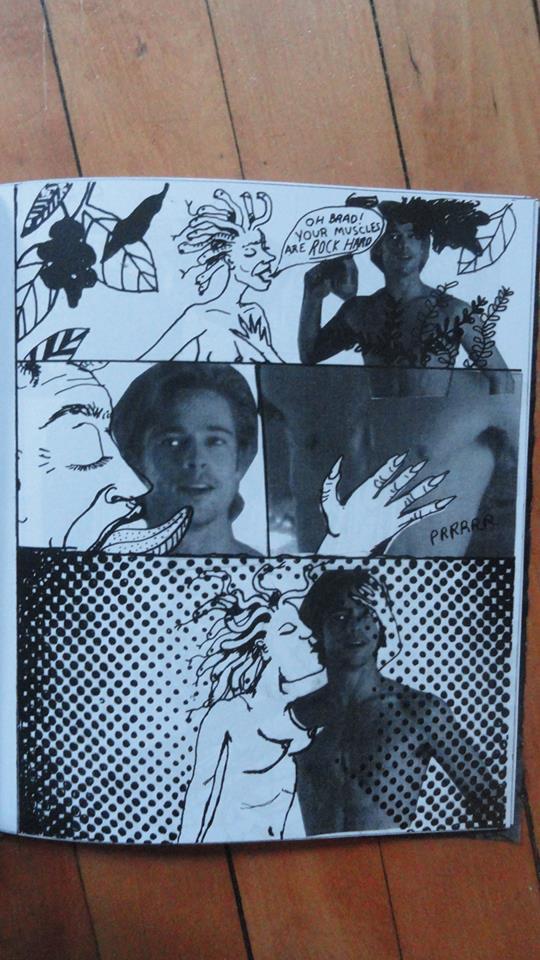 OH BRAD!
YOUR MUSCLES
ARE ROCK HARD
PRRRRR